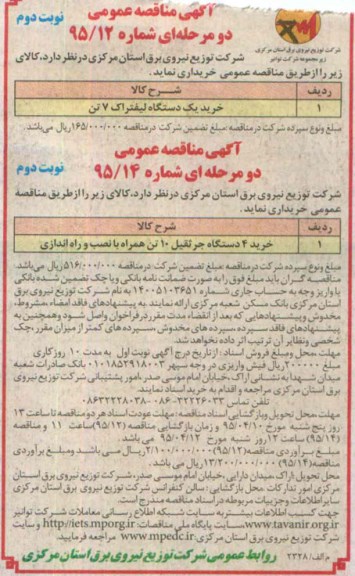 آگهی مناقصه عمومی
دو مرحله‌ای شماره ۹۵/۱۲
نوبت دوم
شرکت توزیع نیروی برق استان مرکزی
زیر مجموعه شرکت توانیر
شرکت توزیع نیروی برق استان مرکزی درنظر دارد، کالای
زیر را از طریق مناقصه عمومی خریداری نماید.
ردیف شرح کالا
۱ خرید یک دستگاه لیفتراک ۷ تن
مبلغ ونوع سپرده شرکت درمناقصه: مبلغ تضمین شرکت درمناقصه ۱۶۵/۰۰۰/۰۰۰ریال می‌باشد.
آگهی مناقصه عمومی
دو مرحله‌ای شماره ۹۵/۱۴
نوبت دوم
شرکت توزیع نیروی برق استان مرکزی درنظر دارد، کالای زیر را از طریق مناقصه
عمومی خریداری نماید.
ردیف شرح کالا
۱ خرید ۴ دستگاه جرثقیل ۱۰ تن همراه با نصب و راه اندازی
مبلغ ونوع سپرده شرکت درمناقصه: مبلغ تضمین شرکت درمناقصه ۵۱۶/۰۰۰/۰۰۰ ریال می‌باشد.
مناقصه گران باید مبلغ فوق را به صورت ضمانت نامه بانکی ویا چک تضمین شده بانکی
یا واریز وجه به حساب جاری شماره ۱۴۰۰۵۱۰۳۶۵۱ به نام شرکت توزیع نیروی برق
استان مرکزی بانک مسکن شعبه مرکزی ارائه نمایند. به پیشنهادهای فاقد امضاء، مشروط،
مخدوش وپیشنهادهایی که بعد از انقضاء مدت مقرر درفراخوان واصل شود وهمچنین به
پیشنهادهای فاقد سپرده، سپرده های مخدوش، سپرده های کمتر از میزان مقرر، چک
شخصی ونظایر آن ترتیب اثر داده نخواهد شد.
مهلت، محل ومبلغ فروش اسناد: از تاریخ درج آگهی نوبت اول به مدت ۱۰ روز کاری
مبلغ ۲۰۰۰۰۰ ریال فیش واریزی در وجه سپهر ۰۱۰۱۸۵۲۹۱۸۰۰۳ بانک صادرات شعبه
میدان شهدا به نشانی اراک، خیابان امام موسی صدر، امور پشتیبانی شرکت توزیع نیروی
برق استان مرکزی مراجعه و اقدام به خرید اسناد نمایند.
تلفن تماس: ۳۲۲۲۶۰۳۳-۰۸۶ ۰۸۶۳۲۲۲۸۰۳۸
مهلت، محل تحویل وبازگشایی اسناد مناقصه: مهلت عودت اسناد هر دو مناقصه تا ساعت ۱۳
روز پنج شنبه مورخ ۹۵/۰۴/۱۰ و زمان بازگشایی مناقصه (۹۵/۱۲) ساعت ۱۱ و مناقصه
(۹۵/۱۴) ساعت ۱۲ روز شنبه مورخ ۹۵/۰۴/۱۲ می باشد.
مبلغ برآوردی مناقصه (۹۵/۱۲) ۲/۱۰۰/۰۰۰/۰۰۰ ریال می باشد ومبلغ برآوردی
مناقصه (۹۵/۱۴) ۱۳/۲۰۰/۰۰۰/۰۰۰ ریال می باشد.
محل تحویل: اراک، میدان دارایی، خیابان امام موسی صدر، شرکت توزیع نیروی برق استان
مرکزی امور تدارکات. محل بازگشایی: سالن کنفرانس شرکت توزیع نیروی برق استان مرکزی
سایر اطلاعات وجزییات مربوطه در اسناد مناقصه مندرج است
جهت کسب اطلاعات بیشتر به سایت شبکه اطلاع رسانی معاملات شرکت توانیر
www.tavanir.org.ir سایت پایگاه ملی مناقصات http://iets.mporg.ir و سایت
شرکت توزیع نیروی برق استان مرکزی www.mpedc.ir مراجعه فرمایید
م الف/ ۲۳۲۸ روابط عمومی شرکت توزیع نیروی برق استان مرکزی